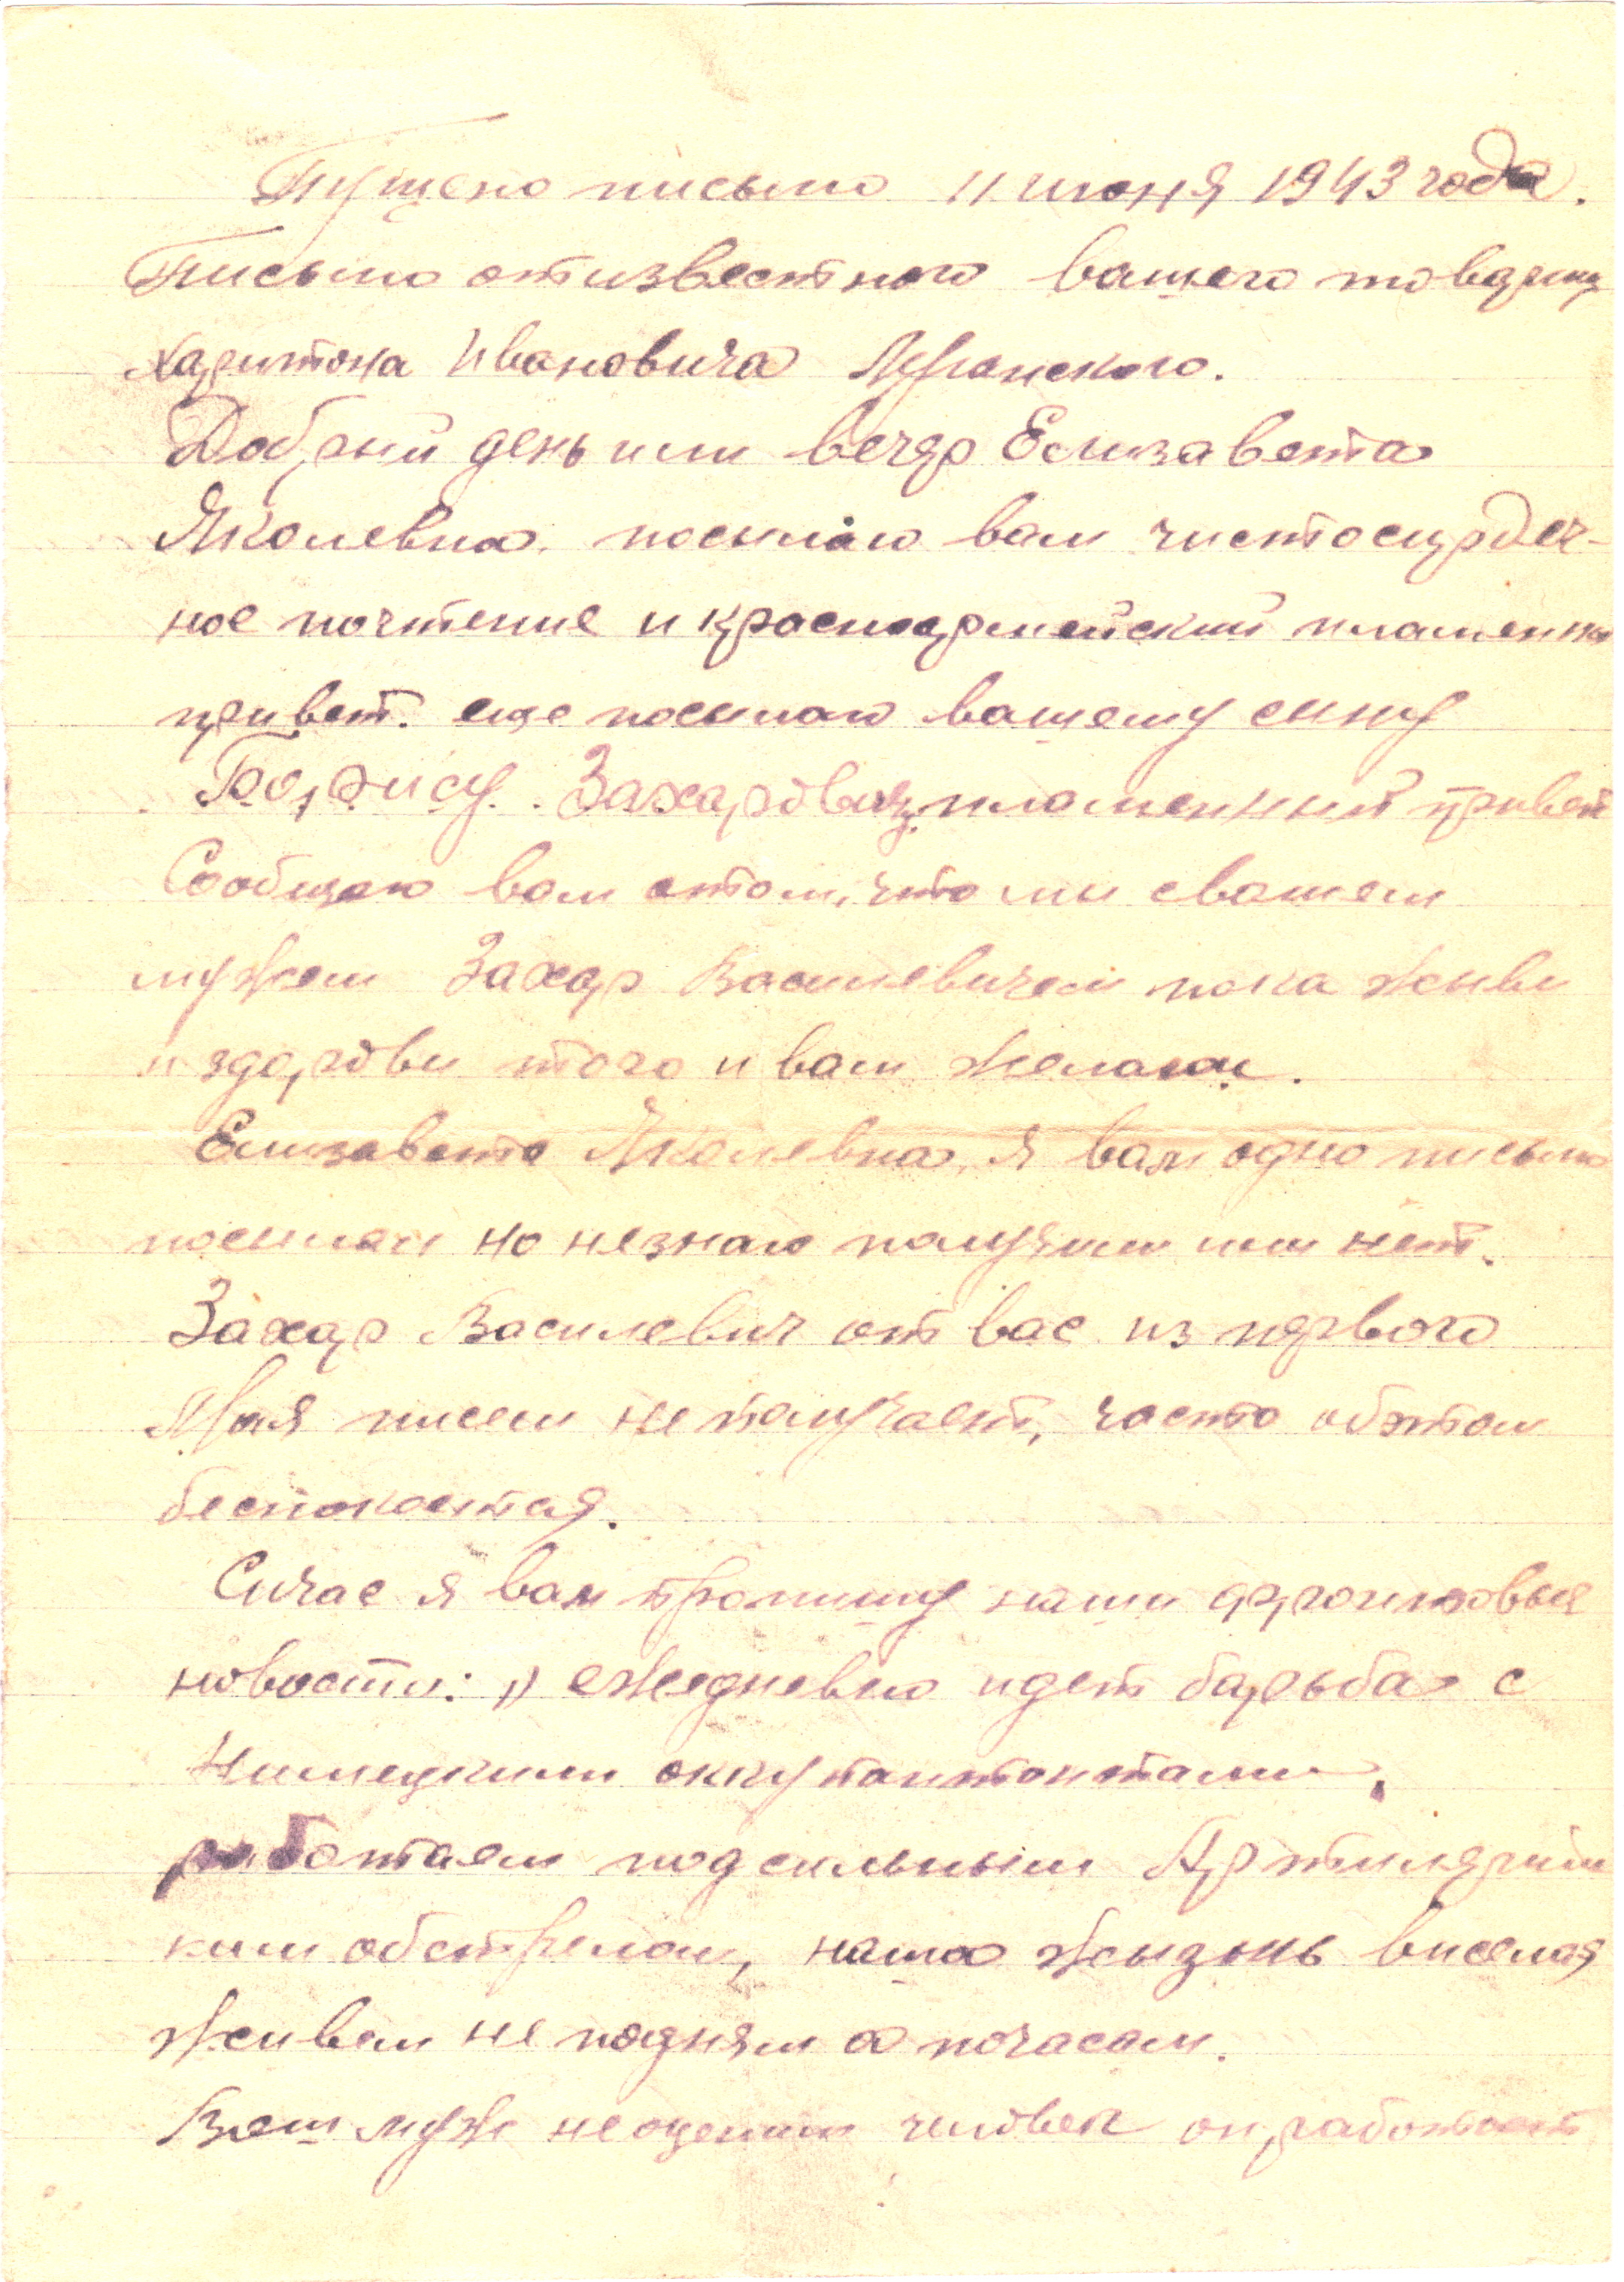 Пущено письмо 11 июня 1943 года.
Письмо от известного вашего товарищ
Харитона Ивановича
Добрий день или вечер Елизавета
Яколевна. посилаю вам чистосердеч-
ное почтение и красноармейский пламенны
привет. еще посилаю вашему сину
Борису. Захаровичу пламенный привет
Сообщаю вам отом, что ми свашем
мужем Захар Василевичем пока живи
и здорови того и вам желаем.
Елизавета Яколевна, я вам одно письмо
посилал но незнаю получили или нет.
Захар Василевич от вас из первого
Мая писем неполучает, часто обэтом
беспокоится.
Сичас я вам пропишу наши фронтовые
новости: 1) ежедневно идет барьба с
Нимецкими
работаем под сильным Артилярийс
ким обстрелом, наша жызнь виселая
живем не подням а почасам.
Ваш муж неоценим человек он работает